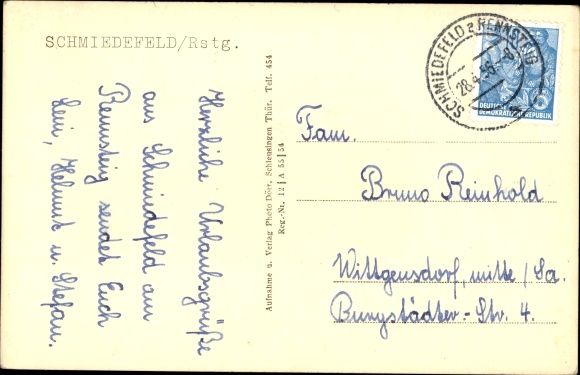 SCHMIEDEFELD/Rstg.
Herzliche Urlaubsgrüße
aus Schmiedefeld am
Rennsteig sendet Euch
Helmut u. Stefan.
Aufnahme u. Verlag Photo-Dörr, Schleusingen Thür. Telf. 454
Reg.-Nr. 12 | A 55 | 54
SCHMIEDEFELD a RENNSTEIG
DEUTSCHE
DEMOKRATISCHE REPUBLIK
Fam.
Bruno Reinhold
Wittgensdorf, mitte/Sa.
Burgstädter-Str. 4.